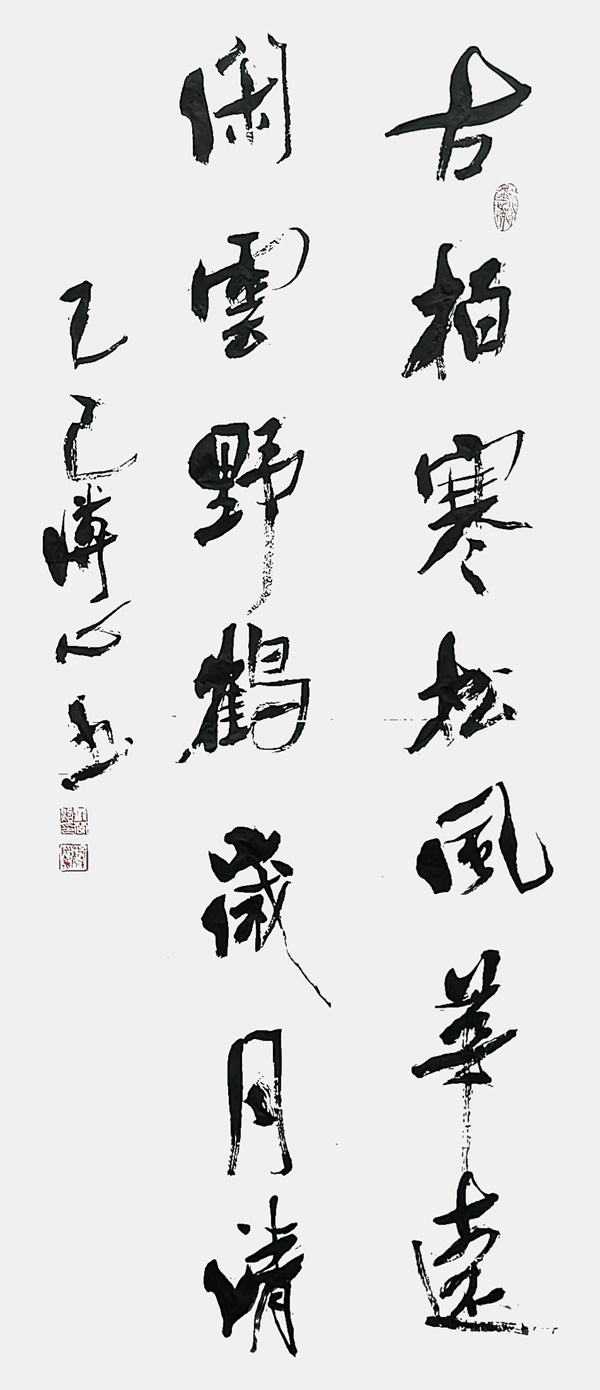 古柏寒松風華遠
閑雲野鶴歲月清
乙巳博心書